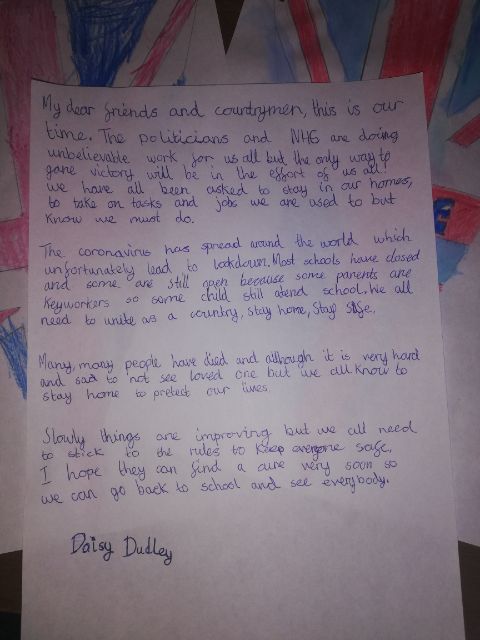 My dear friends and countrymen, this is our
time. The politicians and NHS are doing
unbelievable work for us all but the only way to
gane victory will be in the effort of us all!
we have all been asked to stay in our homes,
to take on tasks and jobs we are used to but
know we must do.
The coronavirus has spread around the world which
unfortunately lead to lockdown. Most schools have closed
and some are still open because some parents are
Keyworkers so some child still atend school. We all
need to unite as a country, stay home, stay safe.
Many, many people have died and although it is very hard
and sad to not see loved one but we all know to
stay home to protect our lives
Slowly things are improving but we all need
to stick to the rules to keep everyone safe.
I hope they can find a cure very soon so
we can go back to school and see everybody.
Daisy Dudley